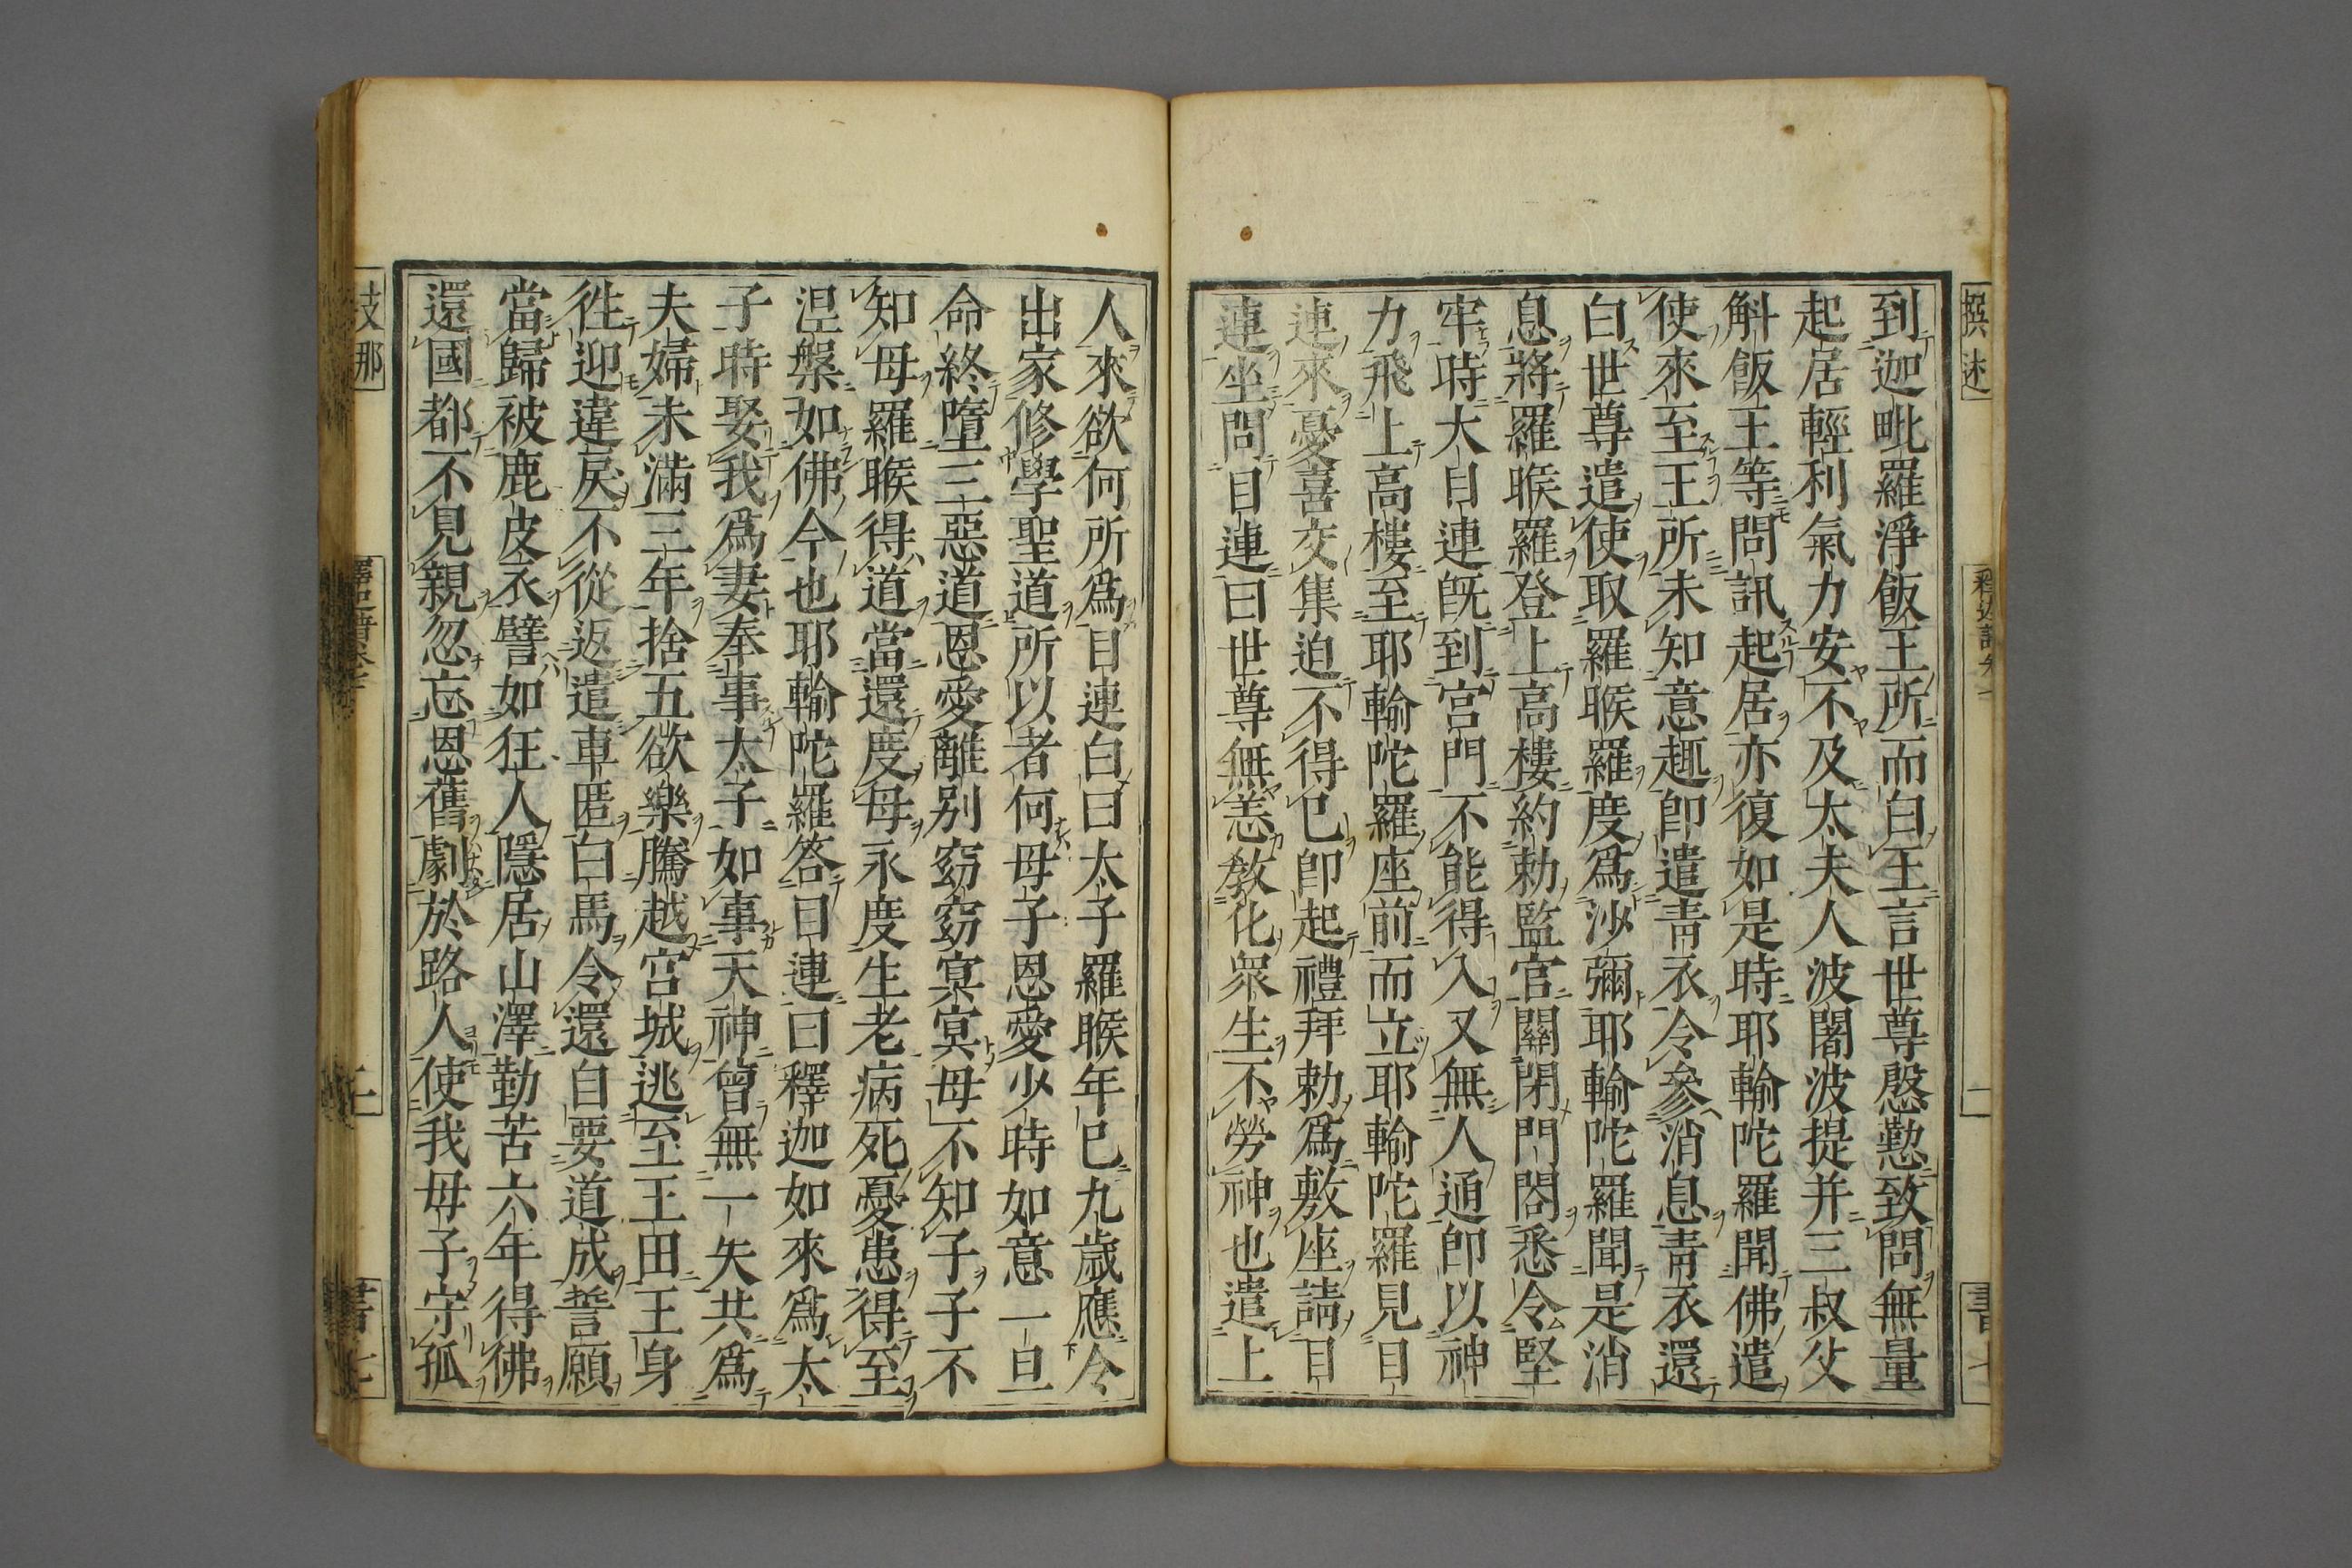 到迦毗羅淨飯王所而白王言世尊慇懃致問無量
起居輕利氣力安不及太夫人波闍波提并三叔父
斛飯王等問訊起居亦復如是時耶輸陀羅聞佛遣
使來至王所未知意趣即遣青衣令參消息青衣還
白世尊遣使取羅睺羅度為沙彌耶輸陀羅聞是消
息將羅睺羅登上高樓約勅監官關閉門閤悉令堅
牢時大目連既到宮門不能得入又無人通即以神
力飛上高樓至耶輸陀羅座前而立耶輸陀羅見目
連來憂喜交集迫不得已即起禮拜勅為敷座請目
連坐問目連曰世尊無恙教化眾生不勞神也遣上
人來欲何所為目連白曰太子羅睺年已九歲應令
出家修學聖道所以者何母子恩愛少時如意一旦
命終墮三惡道恩愛離別窈窈冥冥母不知子子不
知母羅睺得道當還度母永度生老病死憂患得至
涅槃如佛今也耶輸陀羅答目連曰釋迦如來為太
子時娶我為妻奉事太子如事天神曾無一失共為
夫婦未滿三年捨五欲樂騰越宮城逃至王田王身
徃迎違戾不從返遣車匿白馬令還自要道成誓願
當歸被鹿皮衣譬如狂人隱居山澤勤苦六年得佛
還國都不見親忽忘恩舊劇於路人使我母子守孤